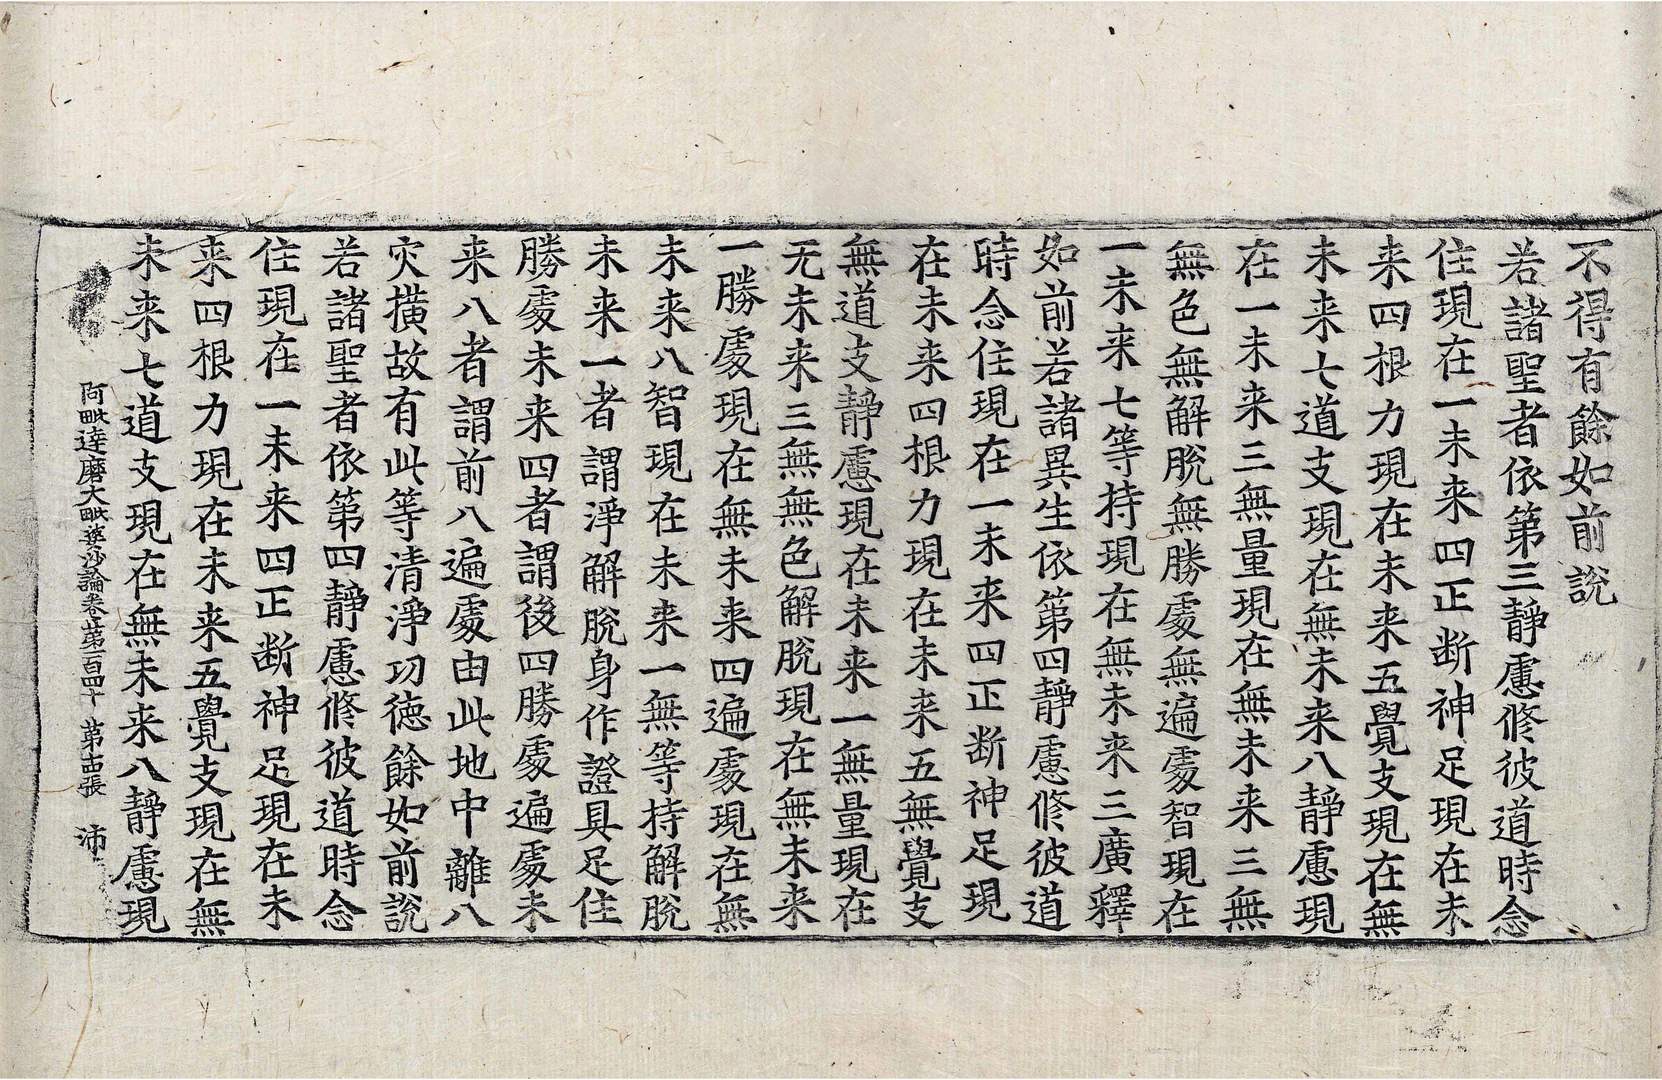 不得有餘如前說
若諸聖者依第三靜慮修彼道時念
住現在一未来四正断神足現在未
来四根力現在未来五覺支現在無
未来七道支現在無未来八靜慮現
在一未来三無量現在無未来三無
無色無解脫無勝處無遍處智現在
一未来七等持現在無未来三廣釋
如前若諸異生依第四靜慮修彼道
時念住現在一未来四正断神足現
在未来四根力現在未来五無覺支
無道支靜慮現在未来一無量現在
无未来三無無色解脫現在無未来
一勝處現在無未来四遍處現在無
未来八智現在未来一無等持解脫
未来一者謂淨解脫身作證具足住
勝處未来四者謂後四勝處遍處未
来八者謂前八遍處由此地中離八
灾横故有此等清淨功德餘如前說
若諸聖者依第四靜慮修彼道時念
住現在一未来四正断神足現在未
来四根力現在未来五覺支現在無
未来七道支現在無未来八靜慮現
阿毗達磨大毗婆沙論卷第一百四十 第十四張 沛